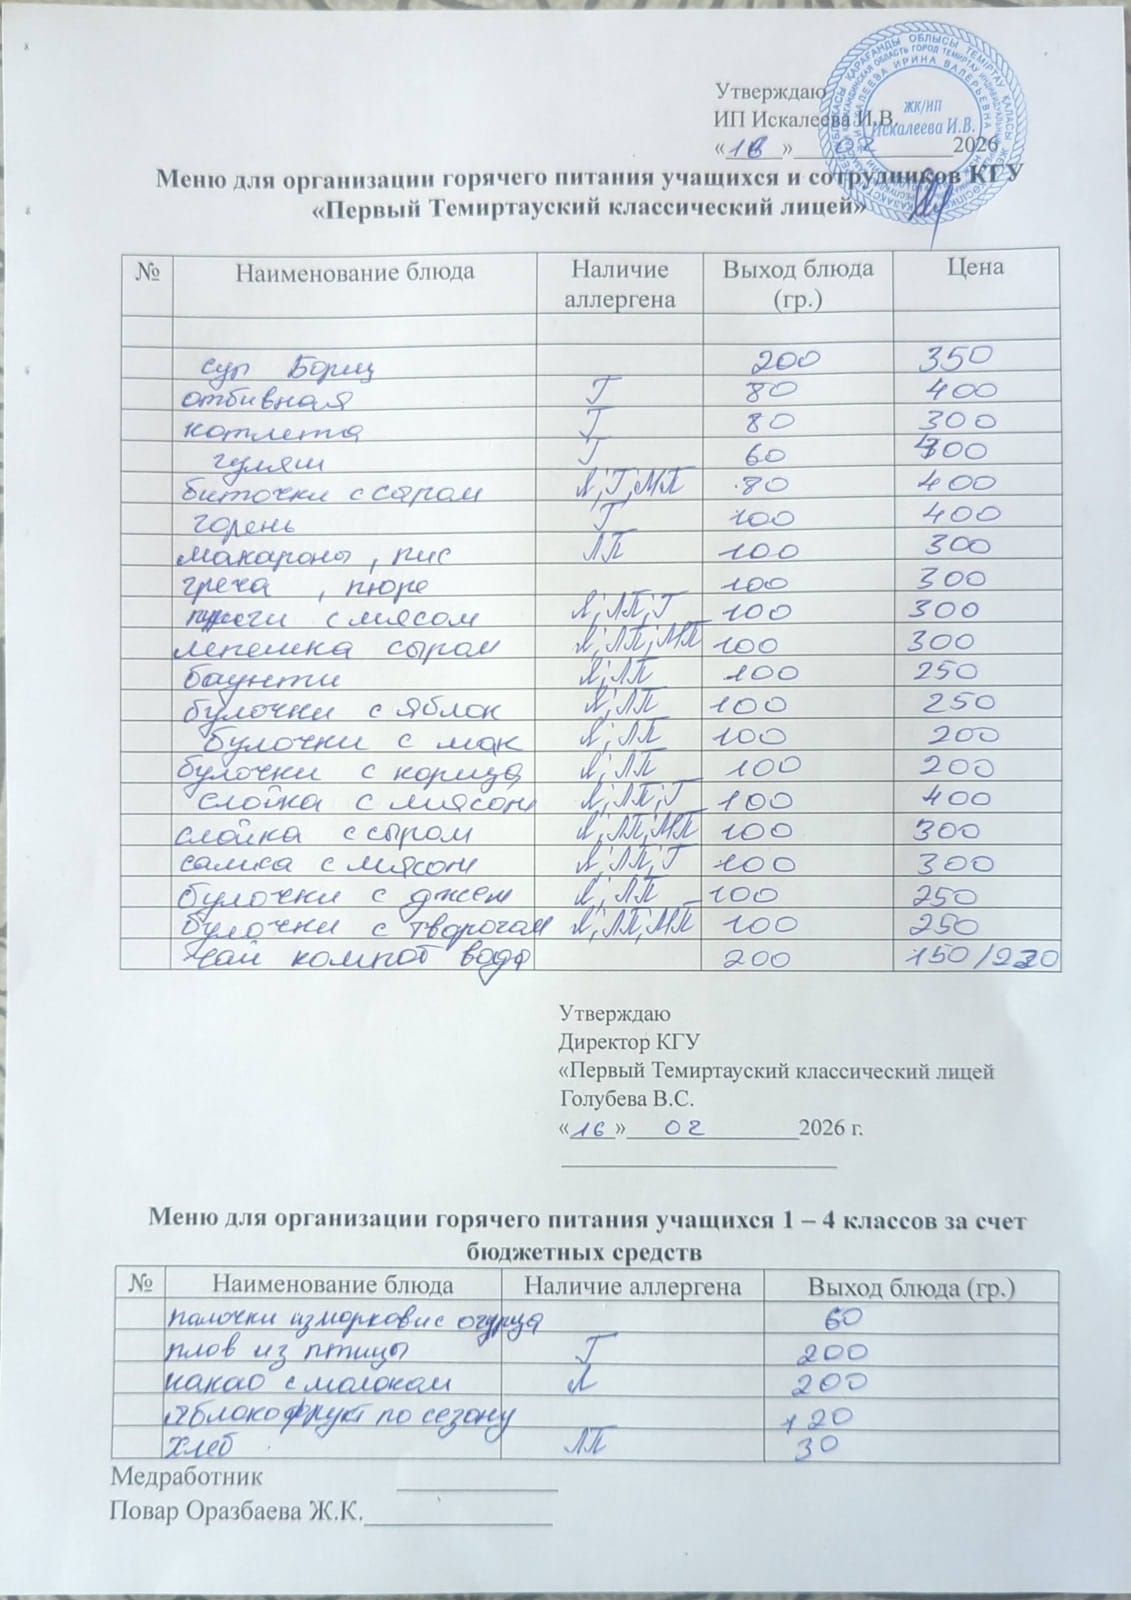 Утверждаю
ИП Искалеева И.В.
«16» 02 2026
ЖК/ИП
Искалеева И.В.
Меню для организации горячего питания учащихся и сотрудников КГУ
«Первый Темиртауский классический лицей»
№ Наименование блюда Наличие аллергена Выход блюда (гр.) Цена
суп Борщ 200 350
отбивная Г 80 400
котлета Г 80 300
гуляш Г 60 400
биточки с сыром Л; Г; МП 80 400
голень Г 100 400
макароны, рис ЛП 100 300
греча, пюре 100 300
с мясом Л; ЛП; Г 100 300
лепешка сыром Л; ЛП; МП 100 300
баунти Л; ЛП 100 250
булочки с яблок Л; ЛП 100 250
булочки с мак Л; ЛП 100 200
булочки с корица Л; ЛП 100 200
слойка с мясом Л; ЛП; Г 100 400
слойка с сыром Л; ЛП; МП 100 300
самса с мясом Л; ЛП; Г 100 300
булочки с джем Л; ЛП 100 250
булочки с творогом Л; ЛП; МП 100 250
чай компот вода 200 150/220
Утверждаю
Директор КГУ
«Первый Темиртауский классический лицей
Голубева В.С.
«16» 02 2026 г.
Меню для организации горячего питания учащихся 1 – 4 классов за счет
бюджетных средств
№ Наименование блюда Наличие аллергена Выход блюда (гр.)
палочки из моркови с огурца 60
плов из птицы Г 200
какао с молоком Л 200
яблоко фрукт по сезону 120
хлеб ЛП 30
Медработник
Повар Оразбаева Ж.К.